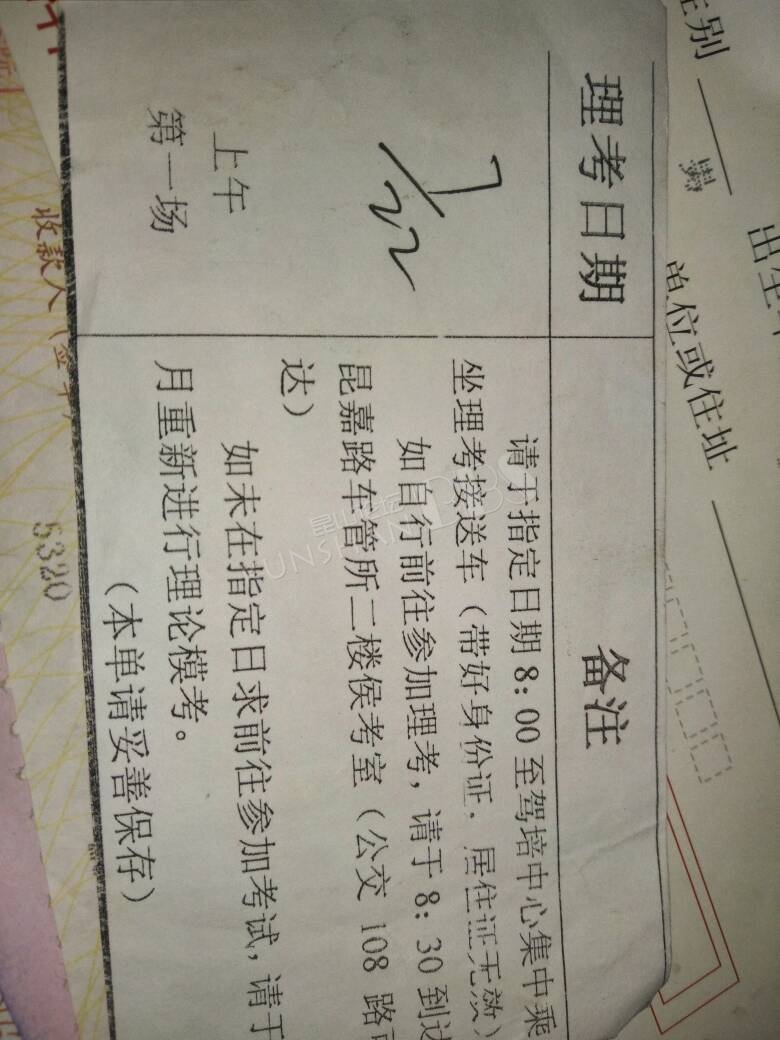 理考日期
7/22
上午
第一场
备注
请于指定日期 8:00 至驾培中心集中乘
坐理考接送车（带好身份证，居住证无效）
如自行前往参加理考，请于 8:30 到达
昆嘉路车管所二楼侯考室（公交 108 路
达）
如未在指定日求前往参加考试，请于
月重新进行理论模考。
（本单请妥善保存）
性别
单位或住址
收款人
5320